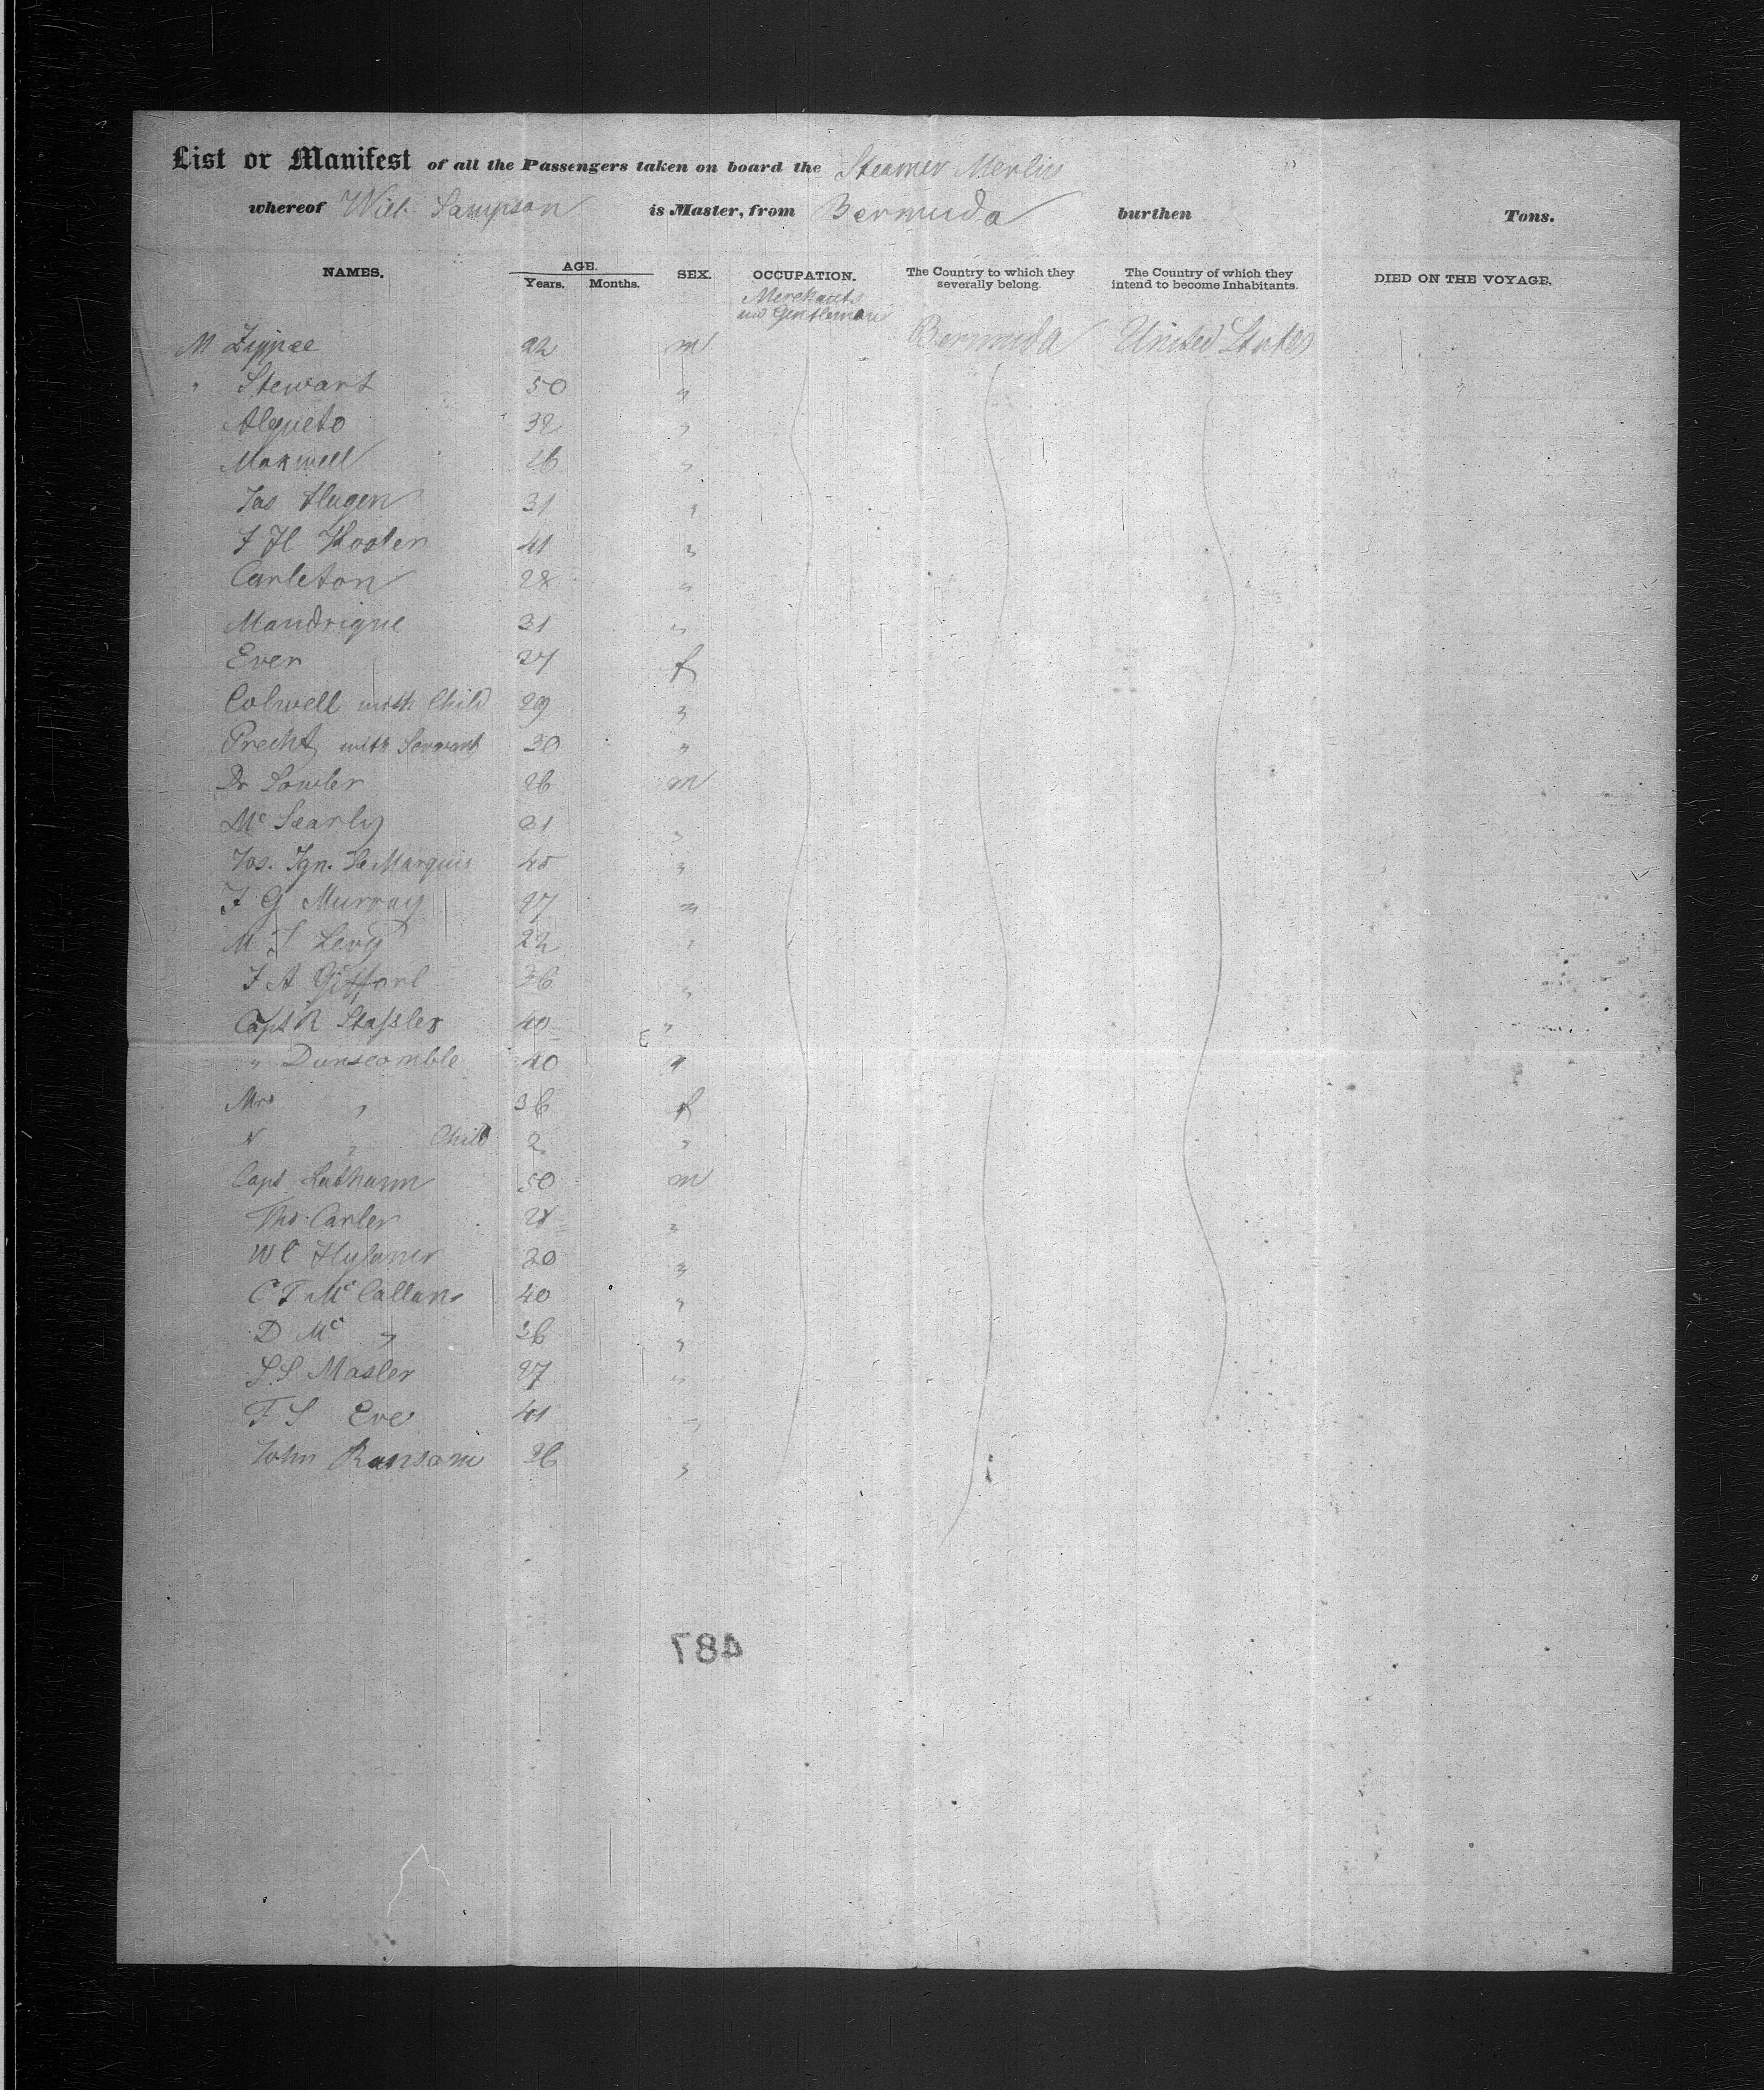 List or Manifest of all the Passengers taken on board the Steamer Merlin
whereof Will. Sampson is Master, from Bermuda burthen Tons.
NAMES. AGE. Years. Months. SEX. OCCUPATION. The Country to which they severally belong. The Country of which they intend to become Inhabitants. DIED ON THE VOYAGE.
Merchants
und Gentleman
M 22 m Bermuda United States
" Stewart 50 "
32 "
Maxwell 26 "
Jas Hugen 31 "
41 "
Carleton 28 "
Mandrigue 31 "
Ever 27 f
Colwell with Child 29 "
Precht with Servant 30 "
Dr 26 m
Mc Searly 21 "
Jos. Ign. Le Marquis 45 "
J G Murray 27 "
M S Levy 22 "
J A 36 "
Capt R 40 "
" Dunscomble 40 "
Mrs " 36 f
" Child 2 "
Capt 50 m
Tho. Carler "
W C 20 "
C T McCallan 40 "
D Mc " 36 "
S.S Masler 27 "
F S Eve 41 "
John Ransom 36 "
487